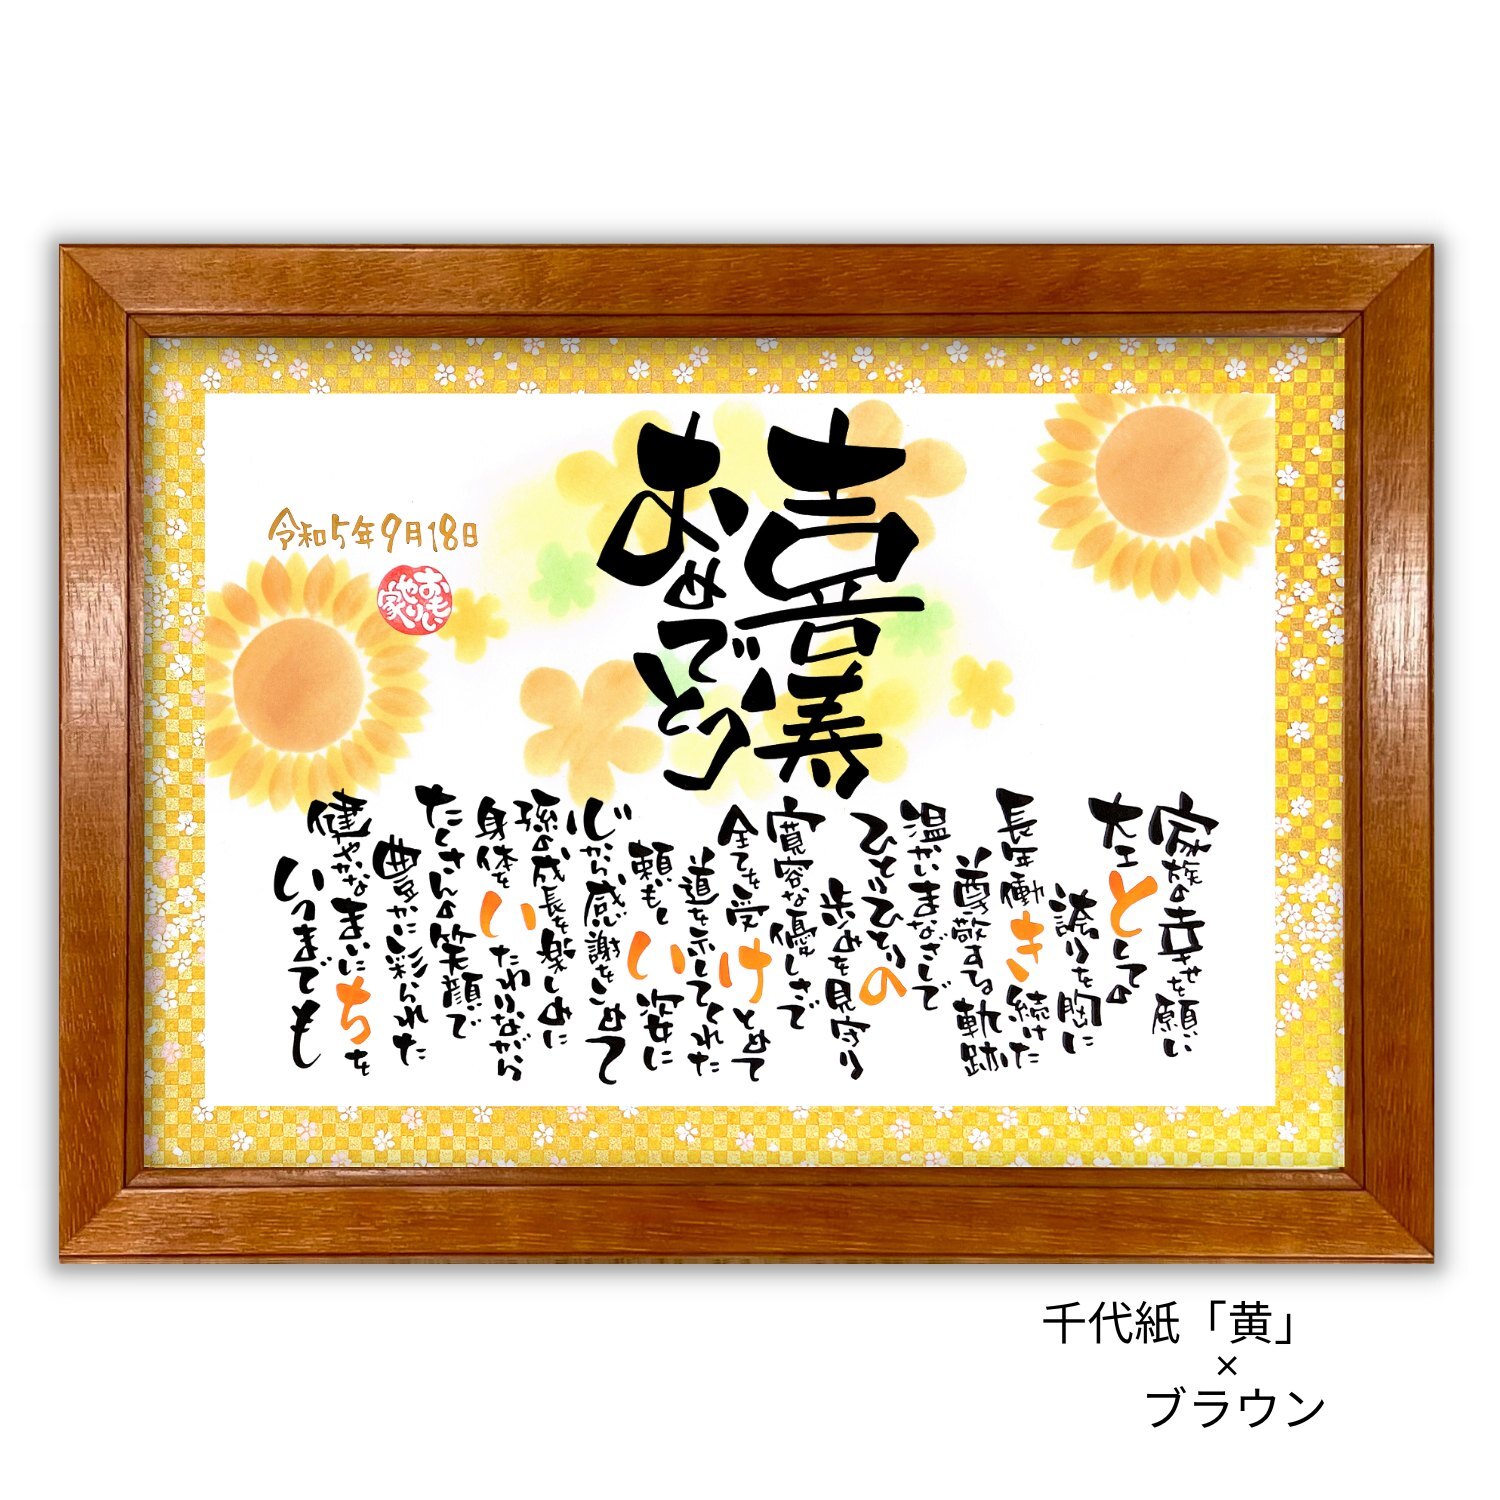 喜寿
おめでとう
令和5年9月18日
おもい
やりし
家
家族の幸せを願い
大工としての
誇りを胸に
長年働き続けた
尊敬する軌跡
温かいまなざしで
ひとりひとりの
歩みを見守り
寛容な優しさで
全てを受けとめて
道を示してくれた
頼もしい姿に
心から感謝をこめて
孫の成長を楽しみに
身体をいたわりながら
たくさんの笑顔で
豊かに彩られた
健やかなまいにちを
いつまでも
千代紙「黄」
×
ブラウン